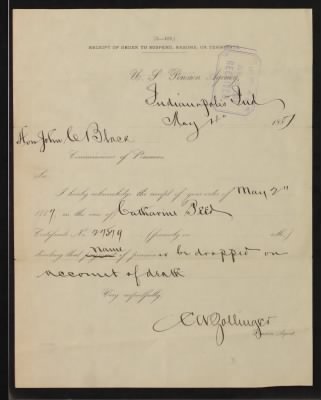 RECEIPT OF ORDER TO SUSPEND, RESUME, OR
U. S. Pension Agency,
Indianapolis Ind
May 4 1887
Hon John C Black
Commissioner of Pensions
Sir:
I hereby acknowledge the receipt of your order of May 2"
1887 in the case of Catharine Peed
Certificate No. 27879 (formerly in
directing that name of pensioner be dropped on
account of death
Very respectfully,
C W Zollinger
Pension Agent.